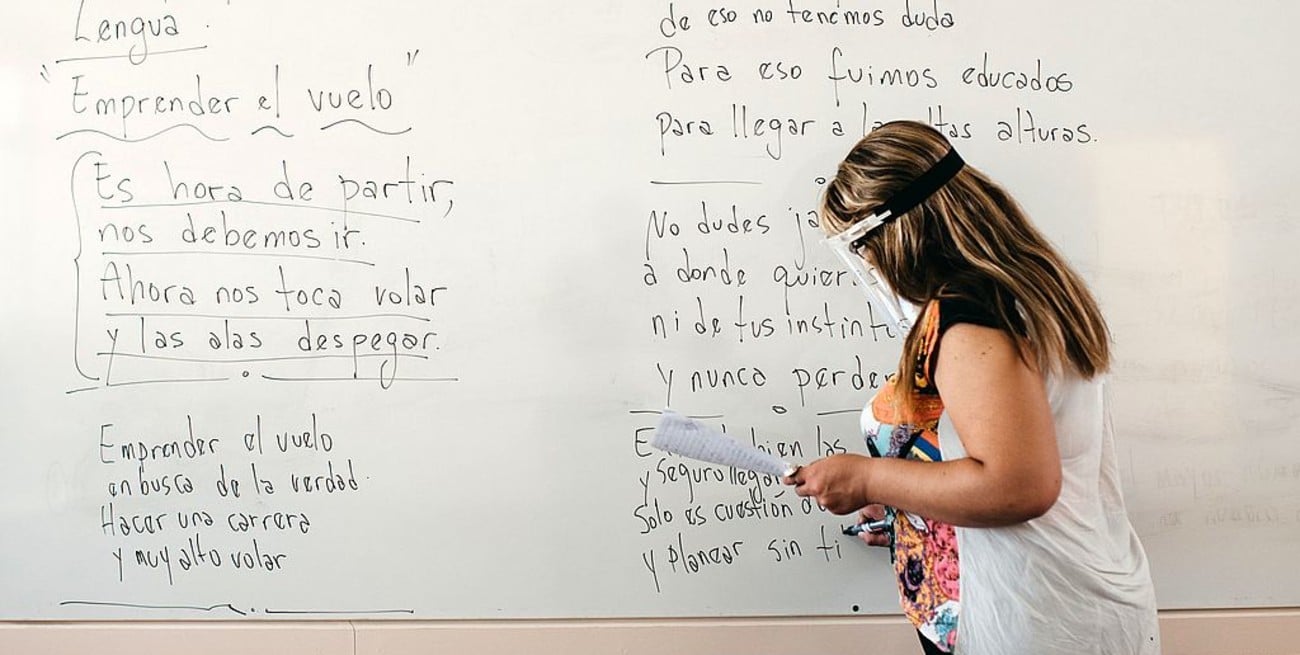 Lengua.
"Emprender el vuelo"
Es hora de partir,
nos debemos ir.
Ahora nos toca volar
y las alas despegar.
Emprender el vuelo
en busca de la verdad.
Hacer una carrera
y muy alto volar
de eso no tenemos duda
Para eso fuimos educados
para llegar a alturas.
No dudes
a donde
ni de tus
y nunca
bien las
y seguro
Solo es cuestión
y planear sin